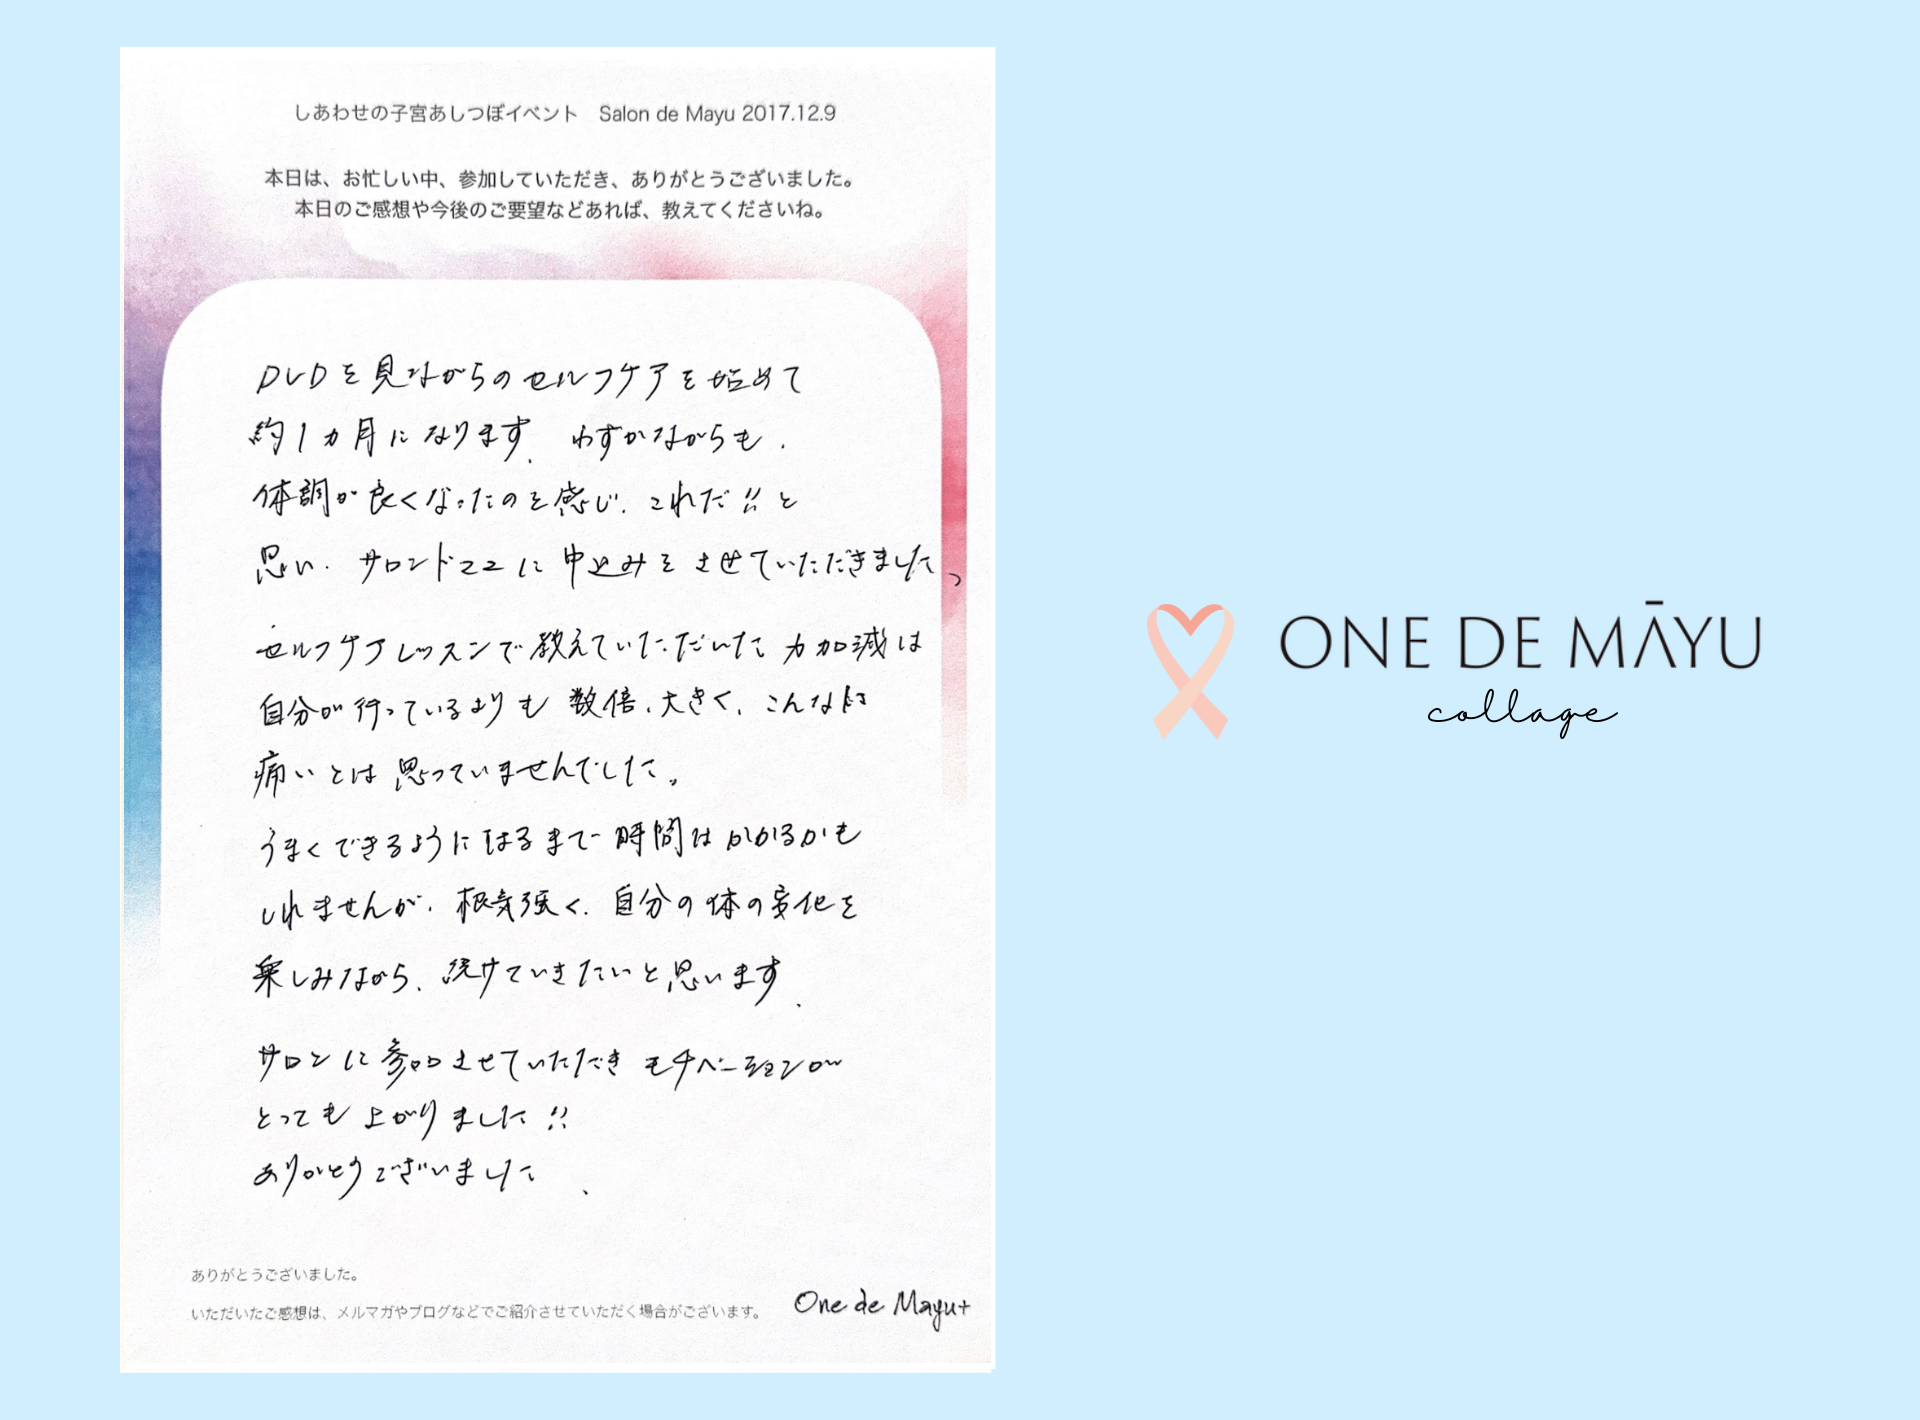 しあわせの子宮あしつぼイベント　Salon de Mayu 2017.12.9
本日は、お忙しい中、参加していただき、ありがとうございました。
本日のご感想や今後のご要望などあれば、教えてくださいね。
DVDを見ながらのセルフケアを始めて
約1カ月になります。わずかながらも、
体調が良くなったのを感じ、これだ!!と
思い、サロンドマユに申込みをさせていただきました。
セルフケアレッスンで教えていただいた力加減は
自分が行っているよりも数倍、大きく、こんなに
痛いとは思っていませんでした。
うまくできるようになるまで時間はかかるかも
しれませんが、根気強く、自分の体の変化を
楽しみながら、続けていきたいと思います。
サロンに参加させていただきモチベーションが
とっても上がりました!!
ありがとうございました。
ありがとうございました。
いただいたご感想は、メルマガやブログなどでご紹介させていただく場合がございます。
One de Mayu+
ONE DE MĀYU
collage